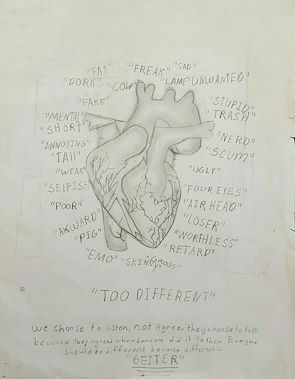 "FAT" "FREAK" "SAD"
"DORK" "COW" "LAME" UNWANTED"
"FAKE" "STUPID"
"MENTAL" TRASH"
"SHORT" "NERD"
"ANNOYING" "SCUM"
"TALL" "UGLY"
"WEAK"
"SELFISH" "FOUR EYES"
"POOR" "AIR HEAD"
"LOSER"
"AKWARD" "WORTHLESS"
"PIG" RETARD"
"EMO" "SKINNY" GROSS"
"TOO DIFFERENT"
We choose to listen, not Agree, they choose to talk
because they agreed when someone did it to them Everyone
should be different because different is
"BETTER"